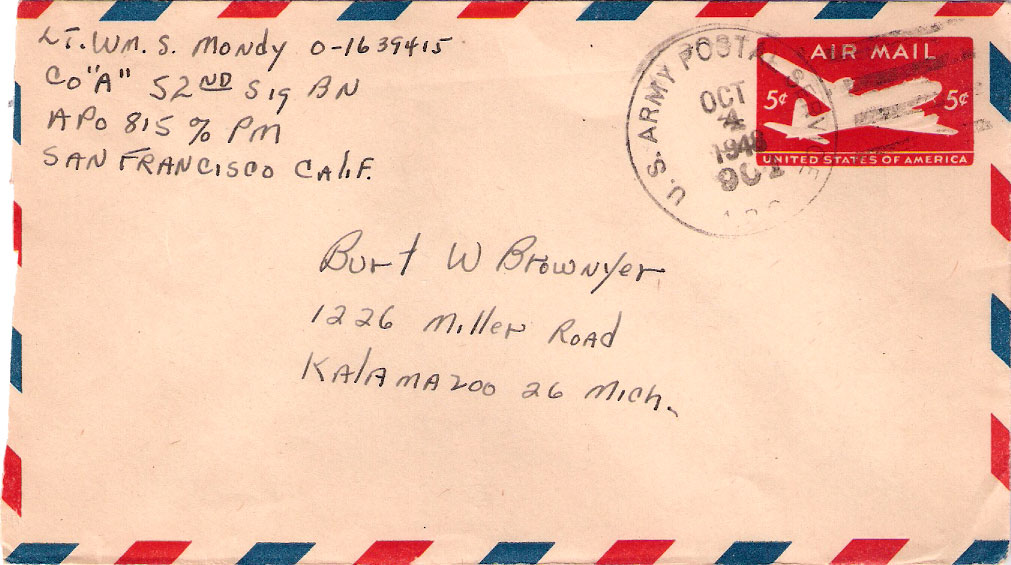 Lt. Wm. S. Mondy 0-1639415
Co "A" 52ND Sig BN
APO 815 % PM
SAN FRANCISCO CALIF.
U.S. ARMY POSTAL SERVICE
OCT
4
1948
901
AIR MAIL
5¢ 5¢
UNITED STATES OF AMERICA
Burt W Brownyer
1226 Miller Road
Kalamazoo 26 Mich.